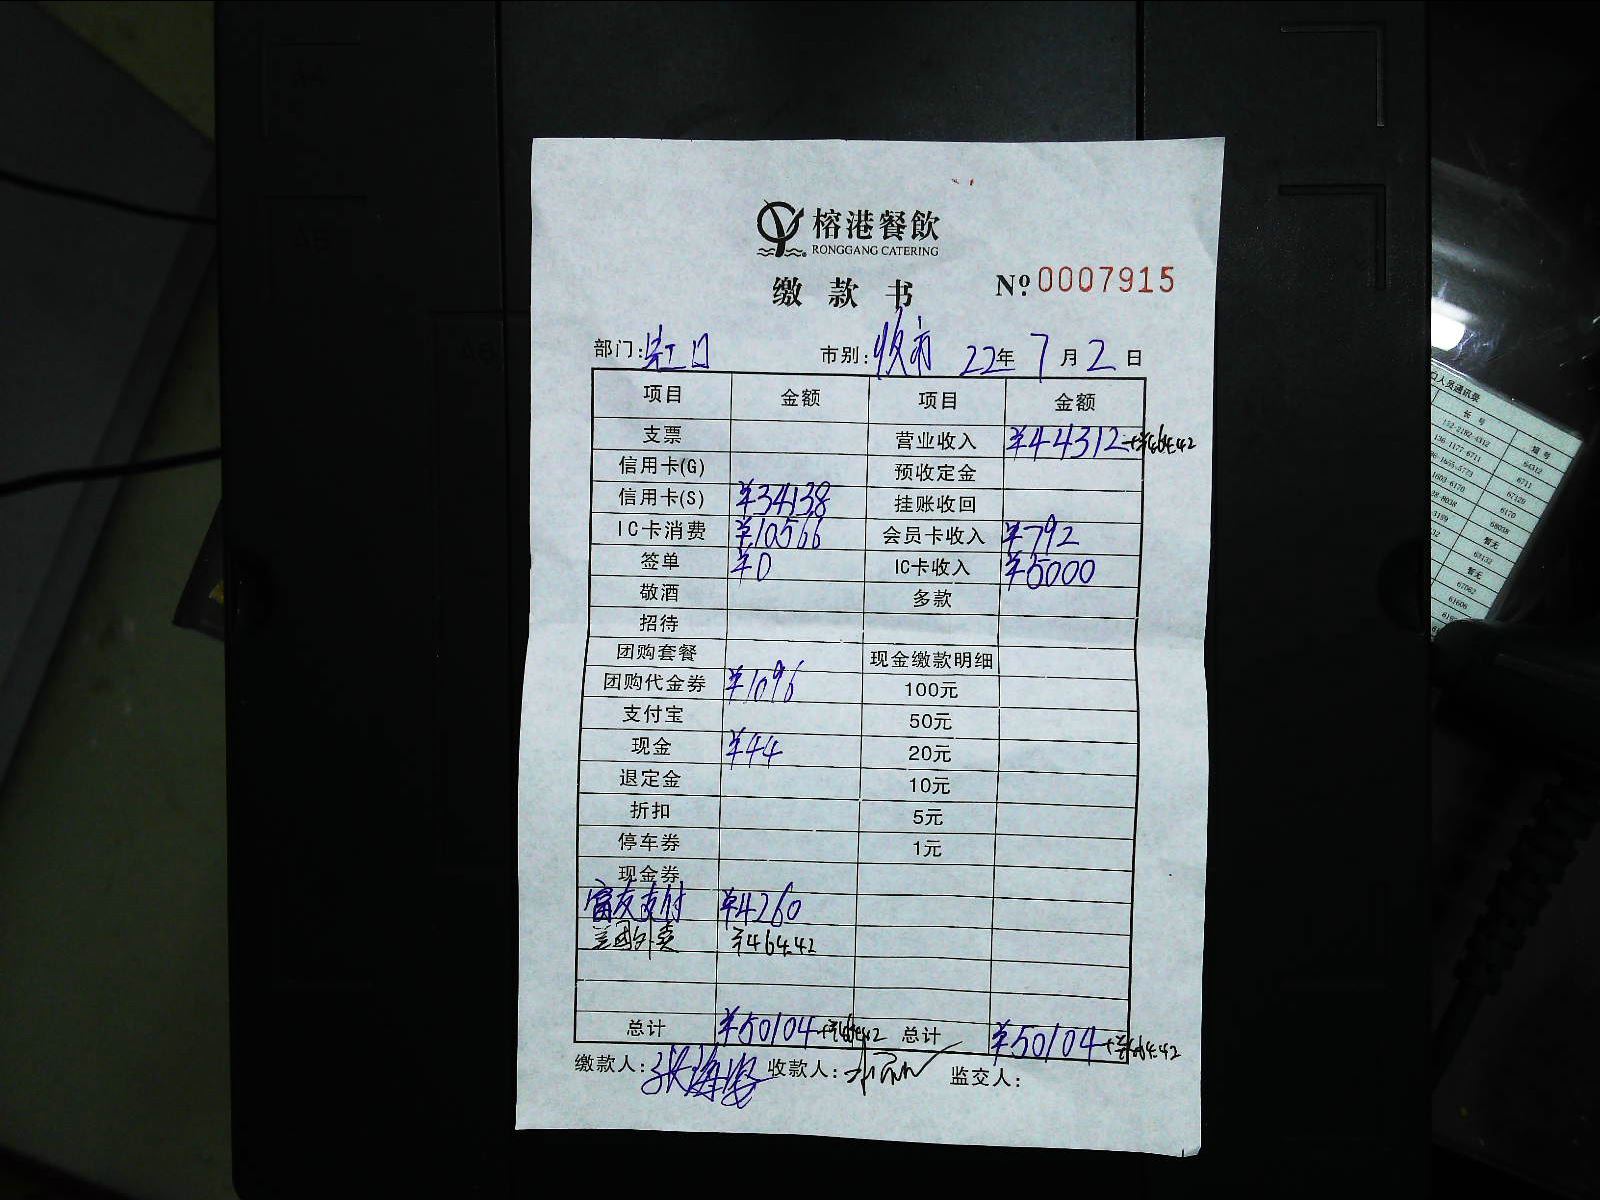 榕港餐飲
RONGGANG CATERING
缴款书 No.0007915
部门:虹口 市别:夜市 22年7月2日
项目 金额 项目 金额
支票 营业收入 ¥44312+¥464.42
信用卡(G) 预收定金
信用卡(S) ¥34138 挂账收回
IC卡消费 ¥10566 会员卡收入 ¥792
签单 ¥0 IC卡收入 ¥5000
敬酒 多款
招待
团购套餐 现金缴款明细
团购代金券 ¥1096 100元
支付宝 50元
现金 ¥44 20元
退定金 10元
折扣 5元
停车券 1元
现金券
富友支付 ¥4260
美团外卖 ¥464.42
总计 ¥50104+¥464.42 总计 ¥50104+¥464.42
缴款人: 收款人: 监交人:
口人员通讯录
长号 短号